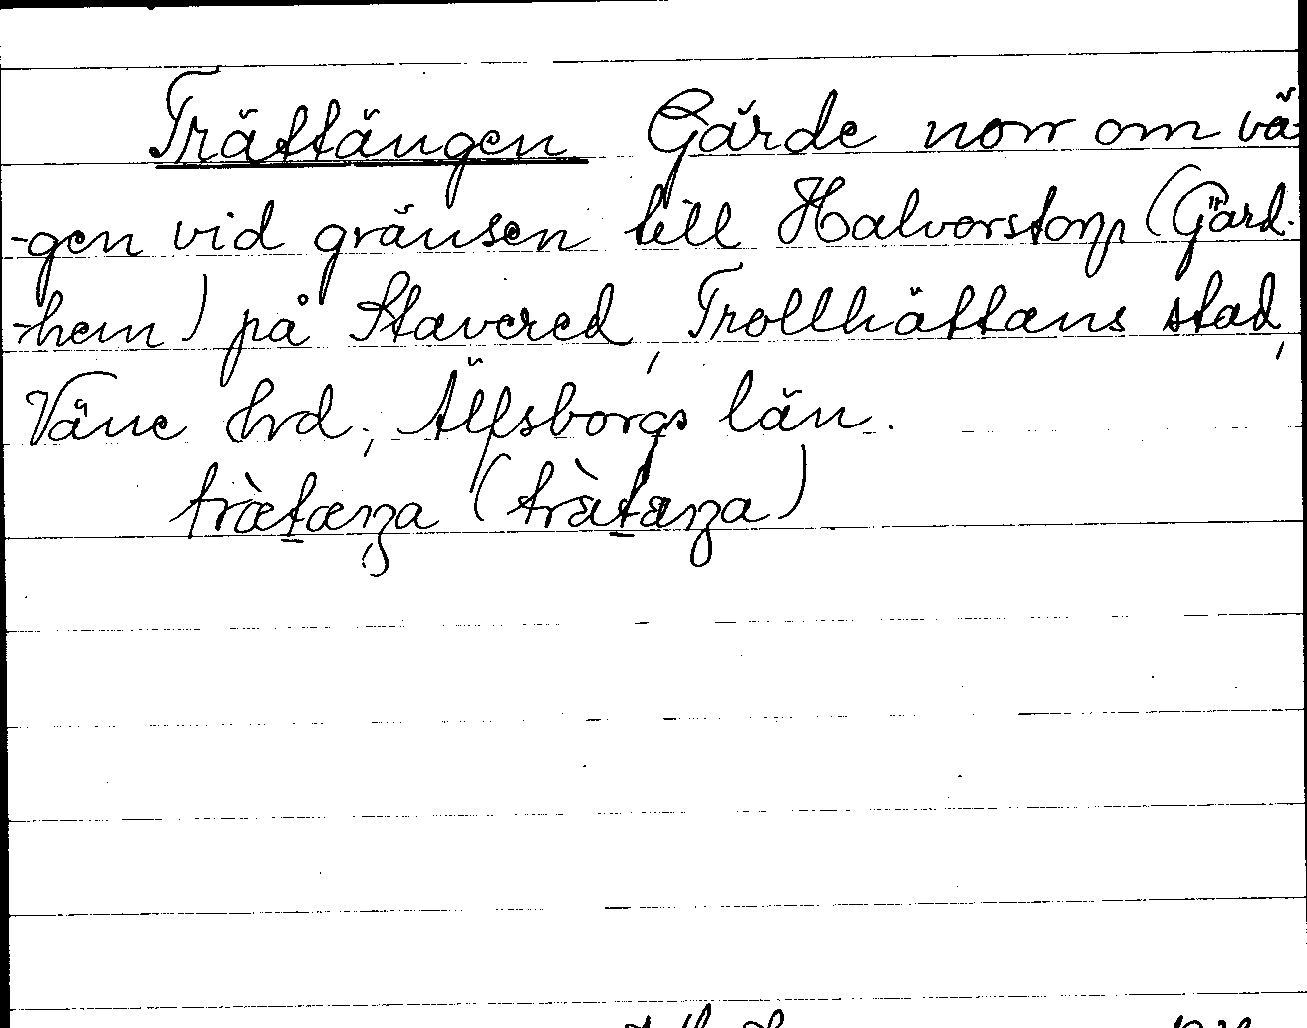 Trättängen Gärde norr om vä-
-gen vid gränsen till Halvorstorp (Gärd-
-hem) på Stavered, Trollhättans stad,
Väne hrd, Älfsborgs län.
trætæŋa (tràtaŋa)